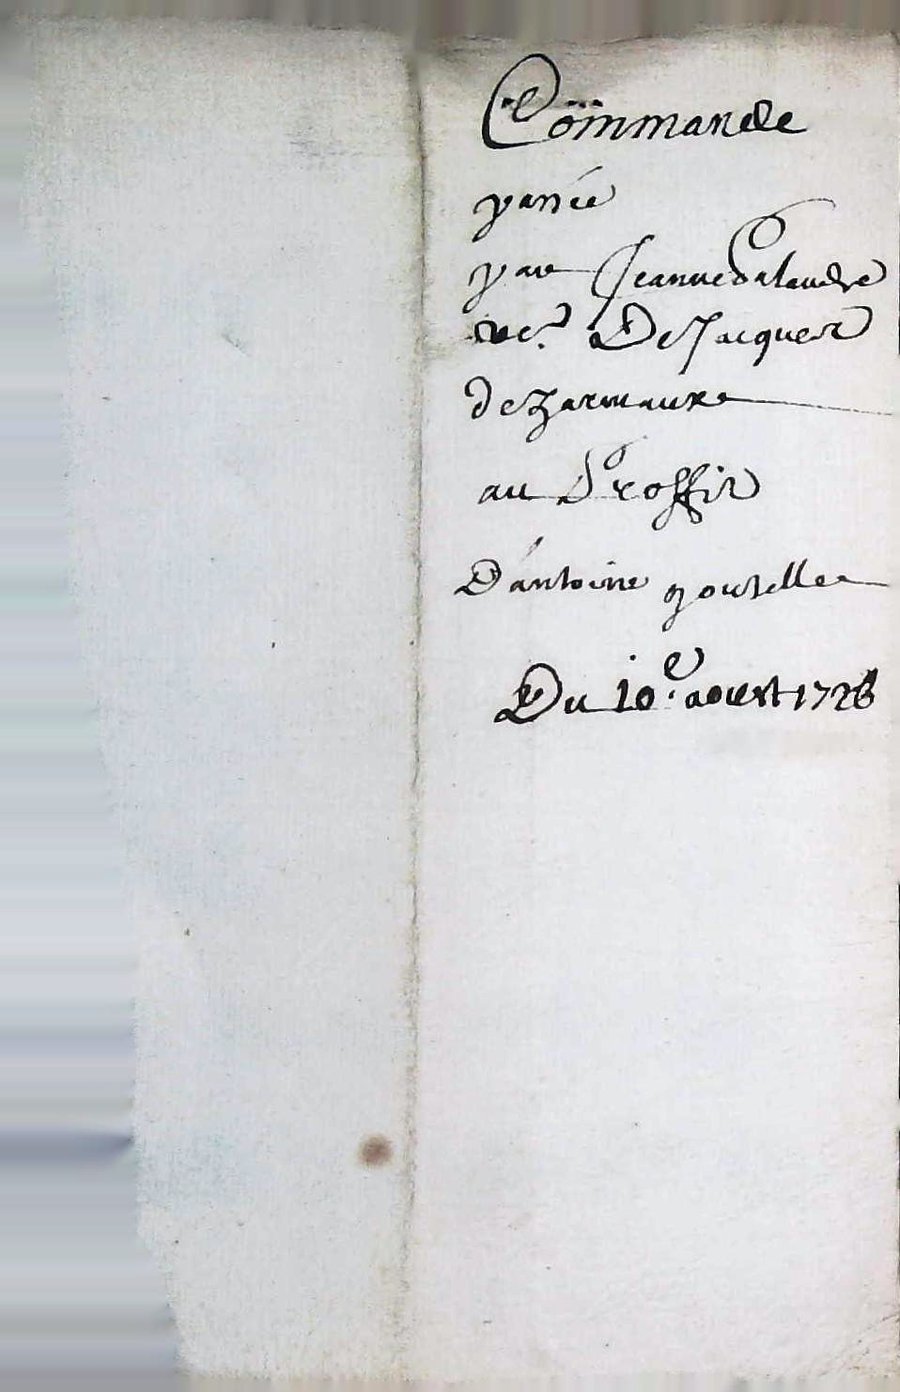 Commande
passée
par Jeanne Dalaudre
ve.e De Jacques
dezarmaux
au Proffit
D'antoine
Du 10.e aoust 1726